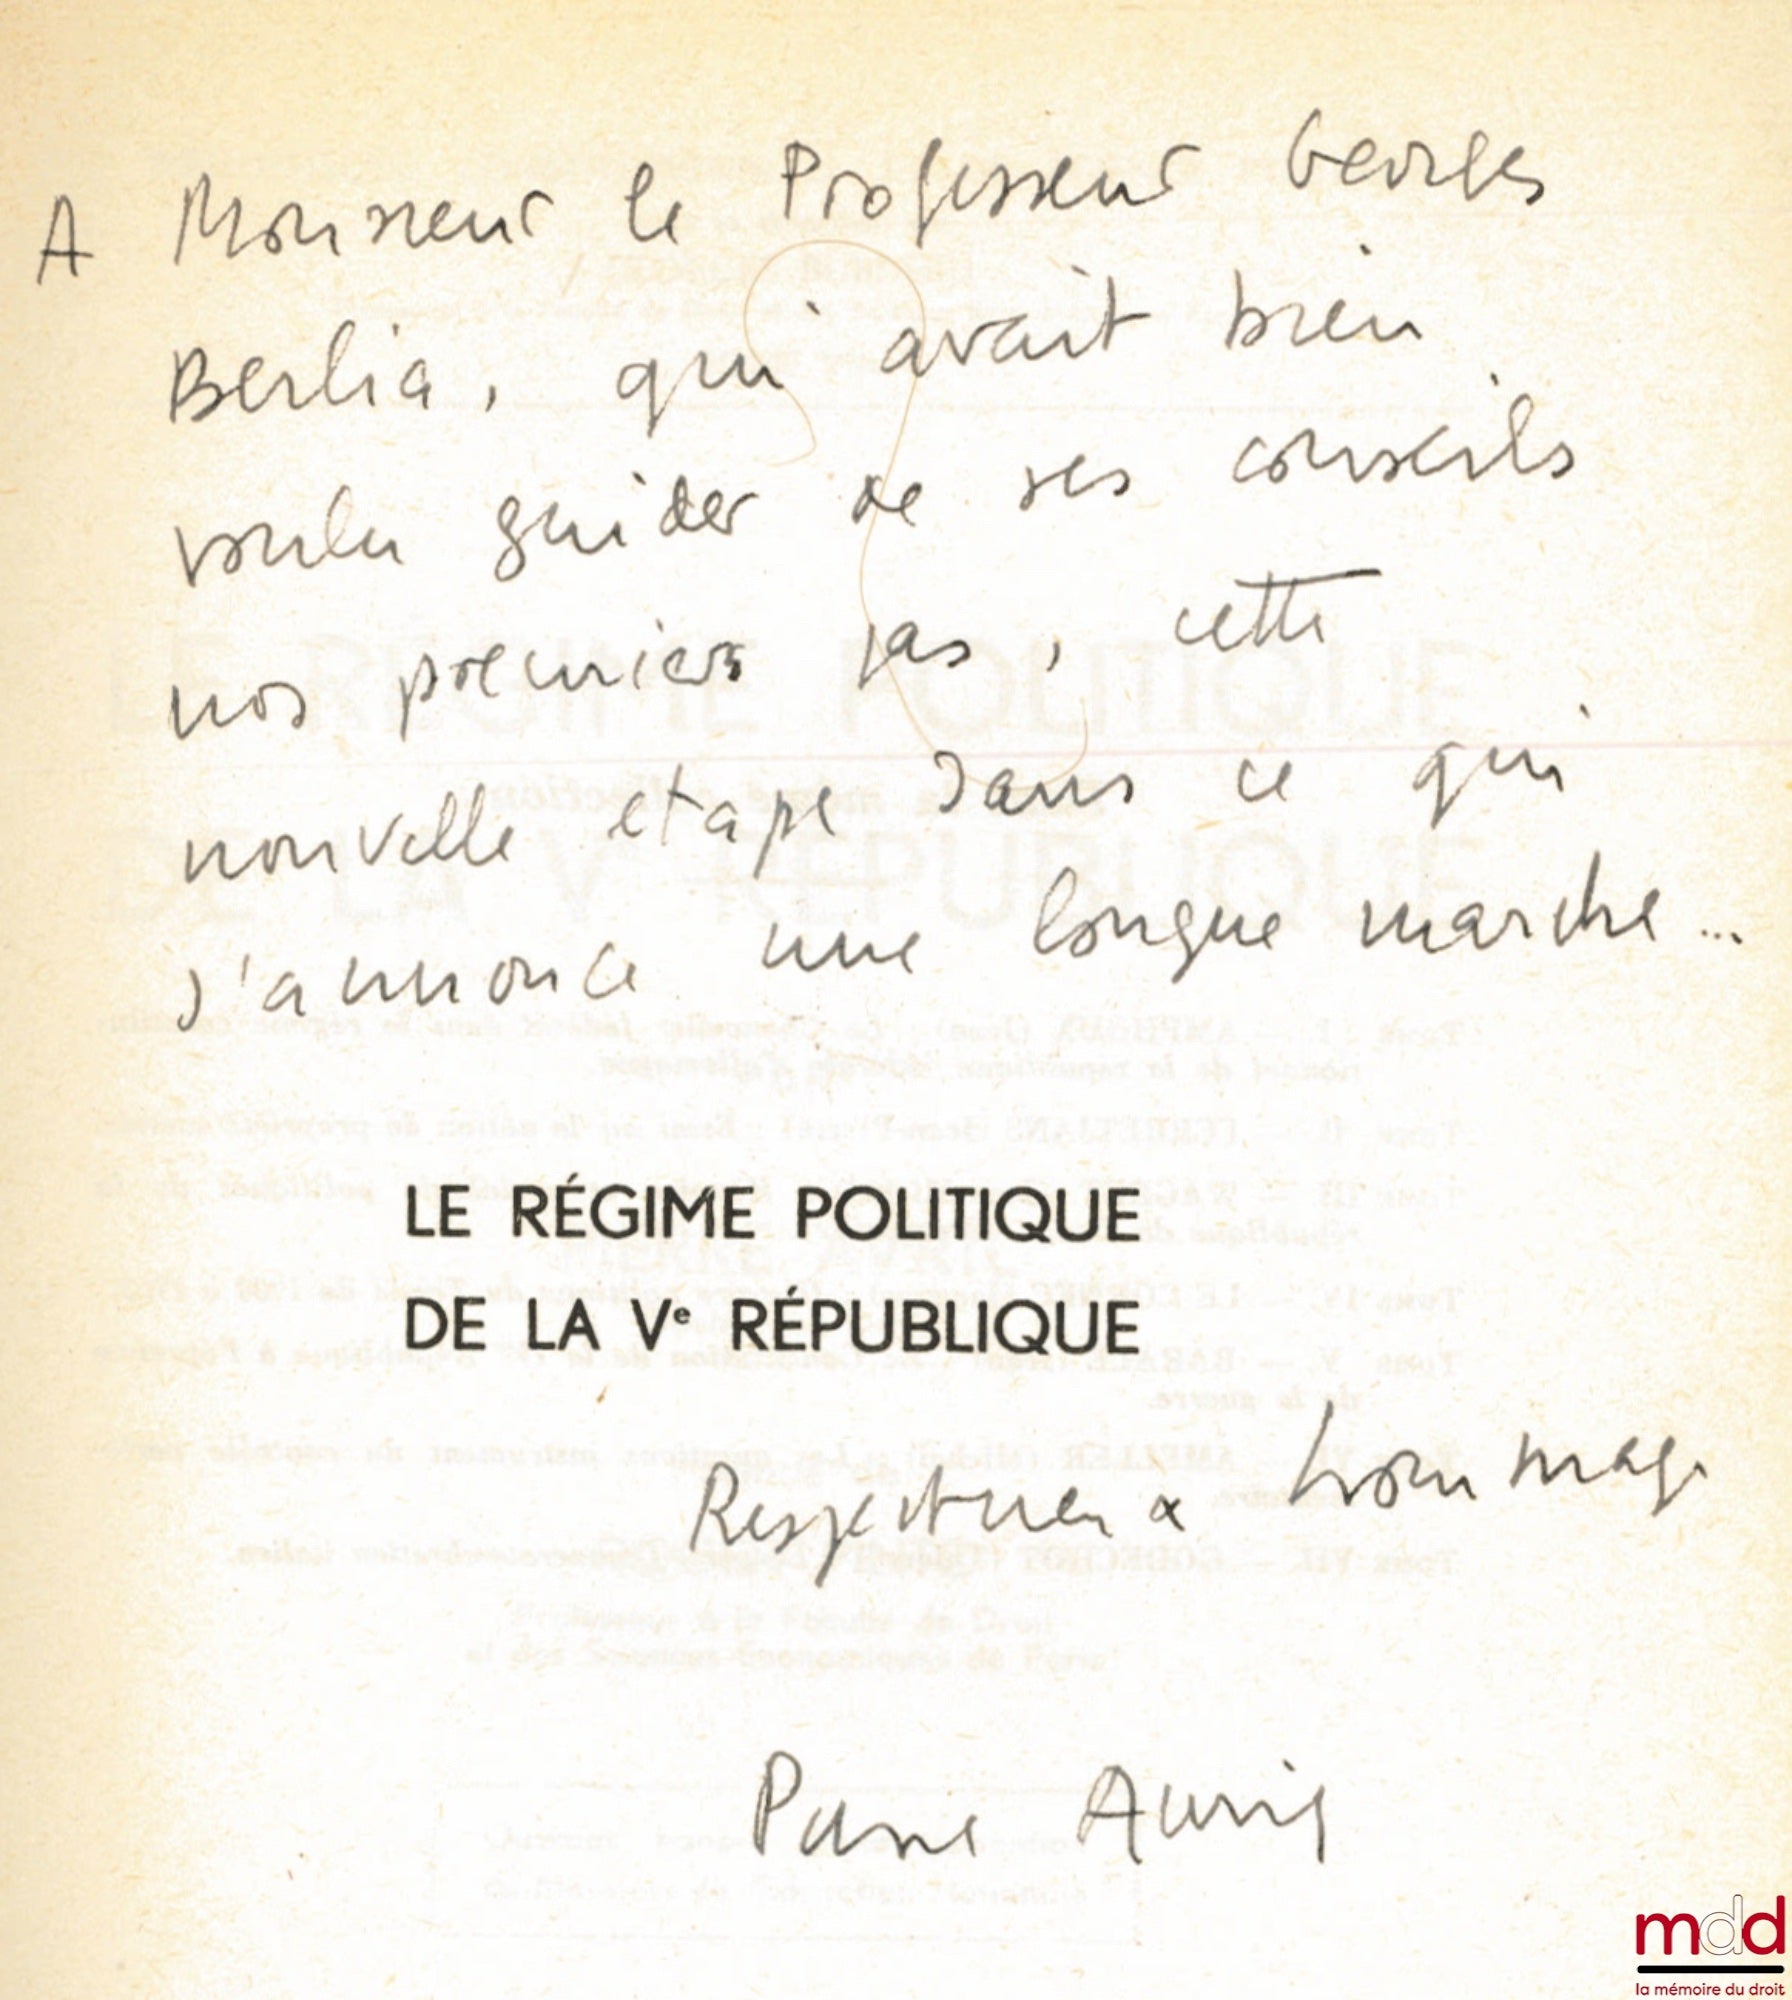 A Monsieur le Professeur Georges
Berlia, qui avait bien
voulu guider de ses conseils
nos premiers pas, cette
nouvelle etape dans ce qui
s'annonce une longue marche...
LE RÉGIME POLITIQUE
DE LA Ve RÉPUBLIQUE
Respectueux hommage
Pierre Avril
mdd
la mémoire du droit